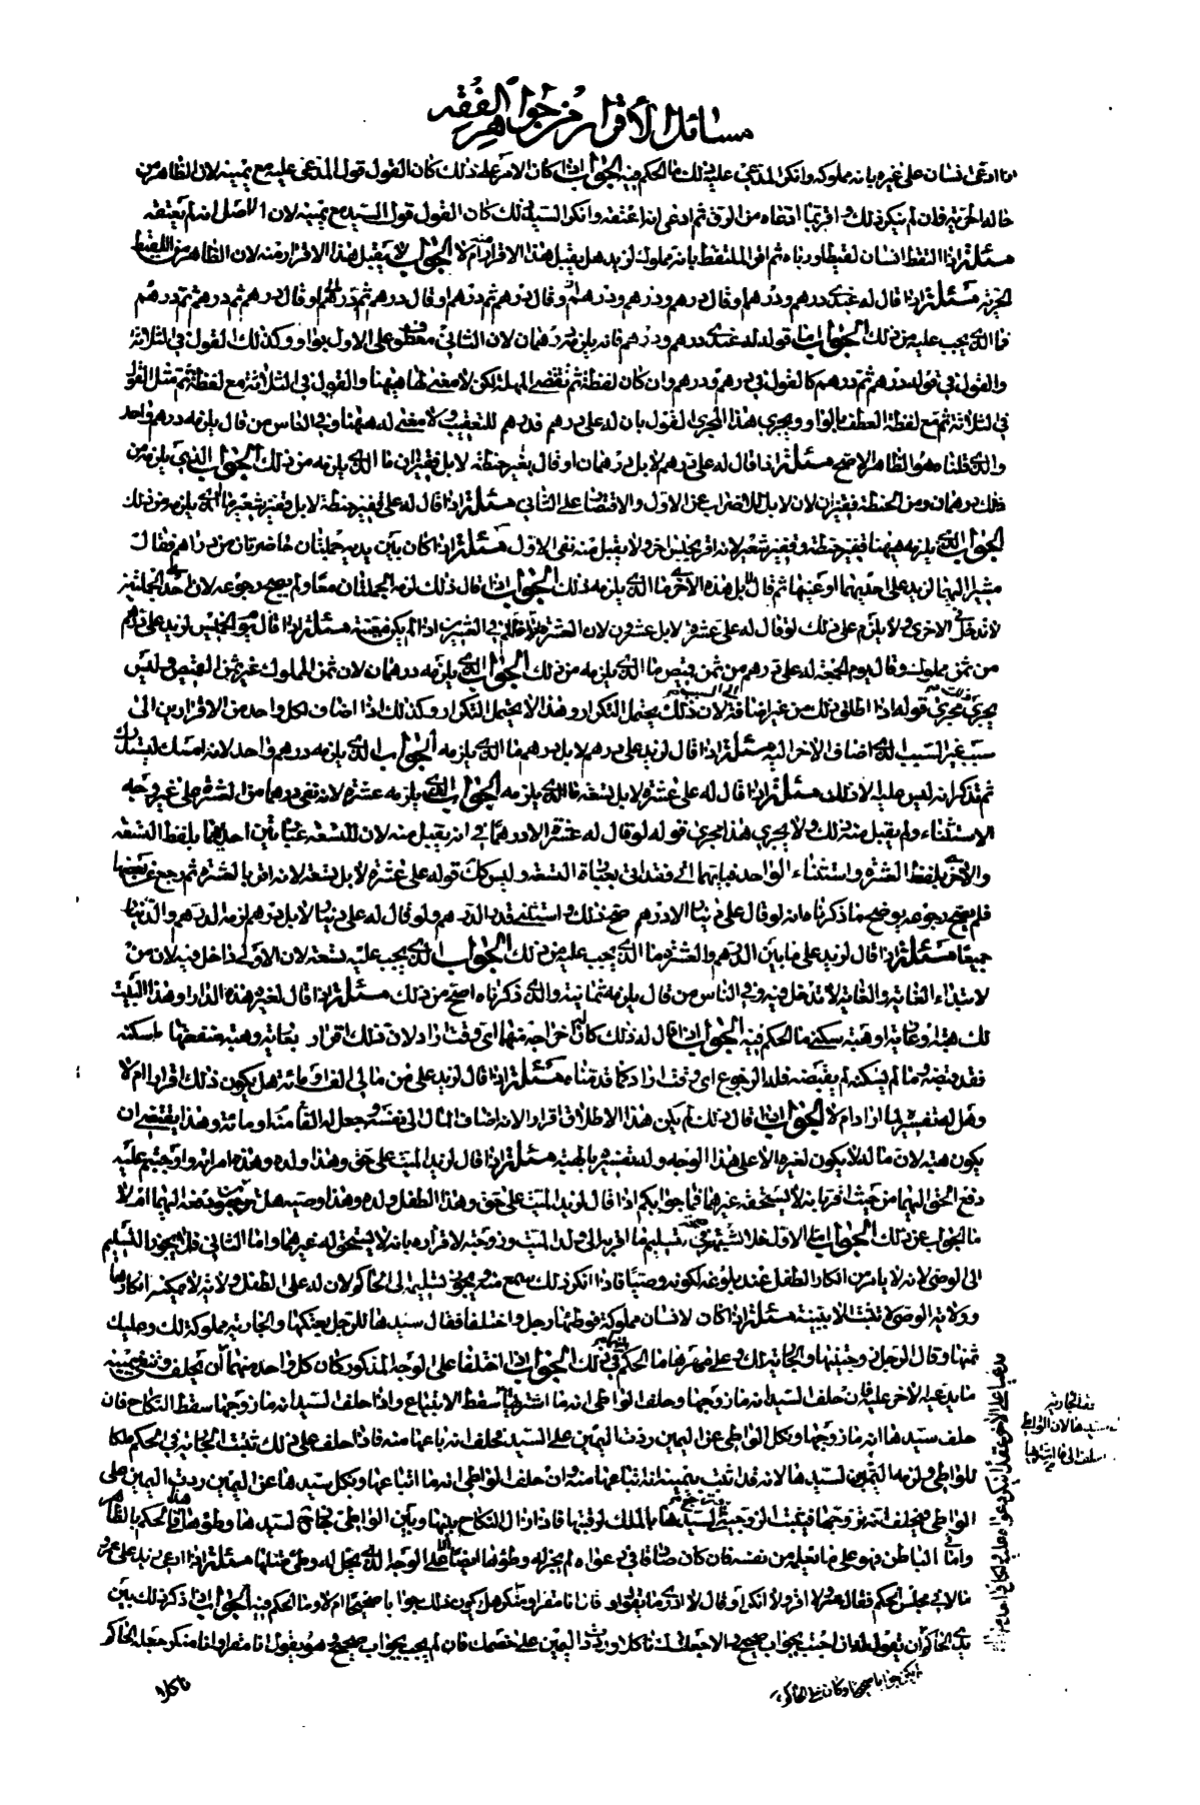 مسائل الاقرار من جواهر الفقه
اذا ادعى انسان على غيره بانه مملوكه وانكر المدعى عليه ذلك ما الحكم فيه الجواب اذا كان الامر على ذلك كان القول قول المدعى عليه مع يمينه لان الظاهر من
حاله الحرية فان لم ينكر ذلك واقر بما ادعاه من الرق ثم ادعى انه اعتقه وانكر السيد ذلك كان القول قول السيد مع يمينه لان الاصل انه لم يعتقه
مسئلة اذا التقط انسان لقيطا ورباه ثم اقر الملتقط بانه مملوك لزيد هل يقبل هذا الاقرار منه ام لا الجواب لا يقبل هذا الاقرار منه لان الظاهر من اللقيط
الحرية مسئلة اذا قال له عندي درهم ودرهم او قال درهم ودرهم ودرهم او قال درهم ثم درهم او قال درهم ثم درهم او قال درهم ثم درهم ثم درهم
ما الذي يجب عليه من ذلك الجواب اما قوله له عندي درهم ودرهم فانه يلزمه درهمان لان الثاني معطوف على الاول بواو وكذلك القول في الثلاثة
والقول في قوله درهم ثم درهم كالقول في درهم ودرهم وان كان لفظة ثم تقتضي المهلة لكن لا معنى لها هيهنا والقول في الثلاثة مع لفظة ثم مثل القول
في الثلاثة ثم مع لفظة العطف بالواو ويجري هذا المجرى القول بان له على درهم فدرهم للتعقيب ولا معنى له هيهنا وفي الناس من قال يلزمه درهم واحد
والذي قلناه هو الظاهر الاصح مسئلة اذا قال له على درهم لا بل درهمان او قال قفيز حنطة لا بل قفيزان ما الذي يلزمه من ذلك الجواب الذي يلزمه من
ذلك درهمان ومن الحنطة قفيزان لان لا بل للاضراب عن الاول والاقتصار على الثاني مسئلة اذا قال له على قفيز حنطة لا بل قفيز شعير ما الذي يلزمه من ذلك
الجواب الذي يلزمه هيهنا قفيز حنطة وقفيز شعير لانه اقر بجنس اخر ولا يقبل منه نفى الاول مسئلة اذا كان بين يديه جملتان حاضرتان من دراهم فقال
مشيرا اليهما لزيد على احديهما او عينها ثم قال لا بل هذه الاخرى ما الذي يلزمه ذلك الجواب اذا قال ذلك لزمه الجملتان معا ولم يصح رجوعه لان احدى الجملتين
لا تدخل في الاخرى ولا يلزم على ذلك لو قال له على عشرة لا بل عشرون لان العشرة داخلة في العشرين اذا لم يكن معينة مسئلة اذا قال يوم الخميس لزيد على درهم
من ثمن مملوك وقال يوم الجمعة له على درهم من ثمن قميص ما الذي يلزمه من ذلك الجواب الذي يلزمه درهمان لان ثمن المملوك غير ثمن القميص وليس
يجري ذلك مجرى قوله اذا اطلق ذلك من غير اضافة الى السبب لان ذلك يحتمل التكرار وهذا لا يحتمل التكرار وكذلك اذا اضاف لكل واحد من الاقرارين الى
سبب غير السبب الذي اضاف الاخر اليه مسئلة اذا قال لزيد على درهم لا بل درهم ما الذي يلزمه الجواب الذي يلزمه درهم واحد لانه امسك ليستدرك
ثم تذكر انه ليس عليه الا ذلك مسئلة اذا قال له على عشرة لا بل تسعة ما الذي يلزمه الجواب الذي يلزمه عشرة لانه نفى درهما من العشرة على غير وجه
الاستثناء ولم يقبل منه ذلك ولا يجري هذا مجرى قوله لو قال له عشرة الا درهما في انه يقبل منه لان للتسعة عبارتين احديهما بلفظ التسعة
والاخرى بلفظ العشرة واستثناء الواحد فبايتهما اتى فقد اتى بعبارة التسعة وليس كك قوله على عشرة لا بل تسعة لانه اقر بالعشرة ثم رجع عن بعضها
فلم يصح رجوعه يوضح ما ذكرناه انه لو قال على دينار الا درهم صح ذلك واستثنى قدر الدرهم ولو قال له على دينار لا بل درهم لزمه الدرهم والدينار
جميعا مسئلة اذا قال لزيد على ما بين الدرهم والعشرة ما الذي يجب عليه من ذلك الجواب الذي يجب عليه تسعة لان الاول داخل فيه لان من
لابتداء الغاية والغاية لا تدخل فيه وفي الناس من قال يلزمه ثمانية والذي ذكرناه اصح من ذلك مسئلة اذا قال لغيره هذه الدار او هذا البيت
لك هبة او عارية او هبة سكنى ما الحكم فيه الجواب اذا قال له ذلك كان له اخراجه منها اى وقت اراد لان ذلك اقرار بعارية وهبة منفعتها ما سكنه
فقد قبضه وما لم يسكنه لم يقبضه فله الرجوع اى وقت اراد كما قدمناه مسئلة اذا قال لزيد على من مالي الف او مائة هل يكون ذلك اقرارا ام لا
وهل له تفسيرها اراد ام لا الجواب اذا قال ذلك لم يكن هذا الاطلاق اقرارا لانه اضاف المال الى نفسه وجعل له الفا منه او مائة وهذا يقتضى ان
يكون هبة لان ماله لا يكون لغيره الا على هذا الوجه وله تفسيره بالهبة مسئلة اذا قال لزيد الميت على حق وهذا ولده وهذه امرأته واوجبتم عليه
دفع الحق اليهما من حيث اقر بانه لا يستحقه غيرهما فما جوابكم اذا قال لزيد الميت على حق وهذا الطفل ولده وهذا وصيه هل توجبون دفعه اليهما ام لا
ما الجواب عن ذلك الجواب اما الاول فلا شبهة في صحة تسليم ما اقر به الى ولد الميت وزوجته لاقراره بانه لا يستحق له غيرهما واما الثاني فلا يجوز التسليم
الى الوصي لانه لا يامن انكار الطفل عند بلوغه لكونه وصيا فاذا انكر ذلك سمع منه ويجوز تسليمه الى الحاكم لان له على الطفل ولاية لا يمكنه انكارها
وولاية الوصي لا تثبت الا ببينة مسئلة اذا كان لانسان مملوكة فوطئها رجل واختلفا فقال سيدها للرجل بعتكها والجارية مملوكة لك وعليك
ثمنها وقال الرجل زوجتنيها والجارية لك وعلى مهرها ما الحكم بينهما في ذلك الجواب اذا اختلفا على الوجه المذكور كان كل واحد منهما ان يحلف وينفي بيمينه
ما يدعيه الاخر عليه فان حلف السيد انه ما زوجها وحلف الواطي انه ما اشتريها سقط الابتياع واذا حلف السيد انه ما زوجها سقط النكاح فان
حلف سيدها انه ما زوجها ونكل الواطي عن اليمين ردت اليمين على السيد فحلف انه باعها منه فاذا حلف على ذلك ثبتت الجارية في الحكم ملكا
للواطي ولزمه الثمن لسيدها لانه قد اثبت بيمينه انه ابتاعها منه وان حلف الواطي انه ما ابتاعها ونكل سيدها عن اليمين ردت اليمين على
الواطي فيحلف انه تزوجها فيثبت الزوجية ورجع لسيدها بالملك لرقبتها فاذا زال النكاح بينها وبين الواطي لها حل لسيدها وطؤها هذا في الحكم بالظاهر
واما في الباطن فهو على ما يعلمه من نفسه فان كان صادقا في دعواه لم يجز له وطؤها ايضا الا على الوجه الذي يحل له وطئ مثلها مسئلة اذا ادعى زيد على عمرو
مالا في مجلس الحكم فقال عمرو لا اقر ولا انكر او قال لا ادري ما تقول او قال انا مقر او منكر هل يكون ذلك جوابا صحيحا ام لا وما الحكم فيه الجواب اذا ذكر ذلك بين
يدي الحاكم ان يقول له ان اجبت بجواب صحيح والا جعلتك ناكلا ورددت اليمين على خصمك فان لم يجب بجواب صحيح وهو يقول انا مقر او انا منكر جعله الحاكم
ناكلا